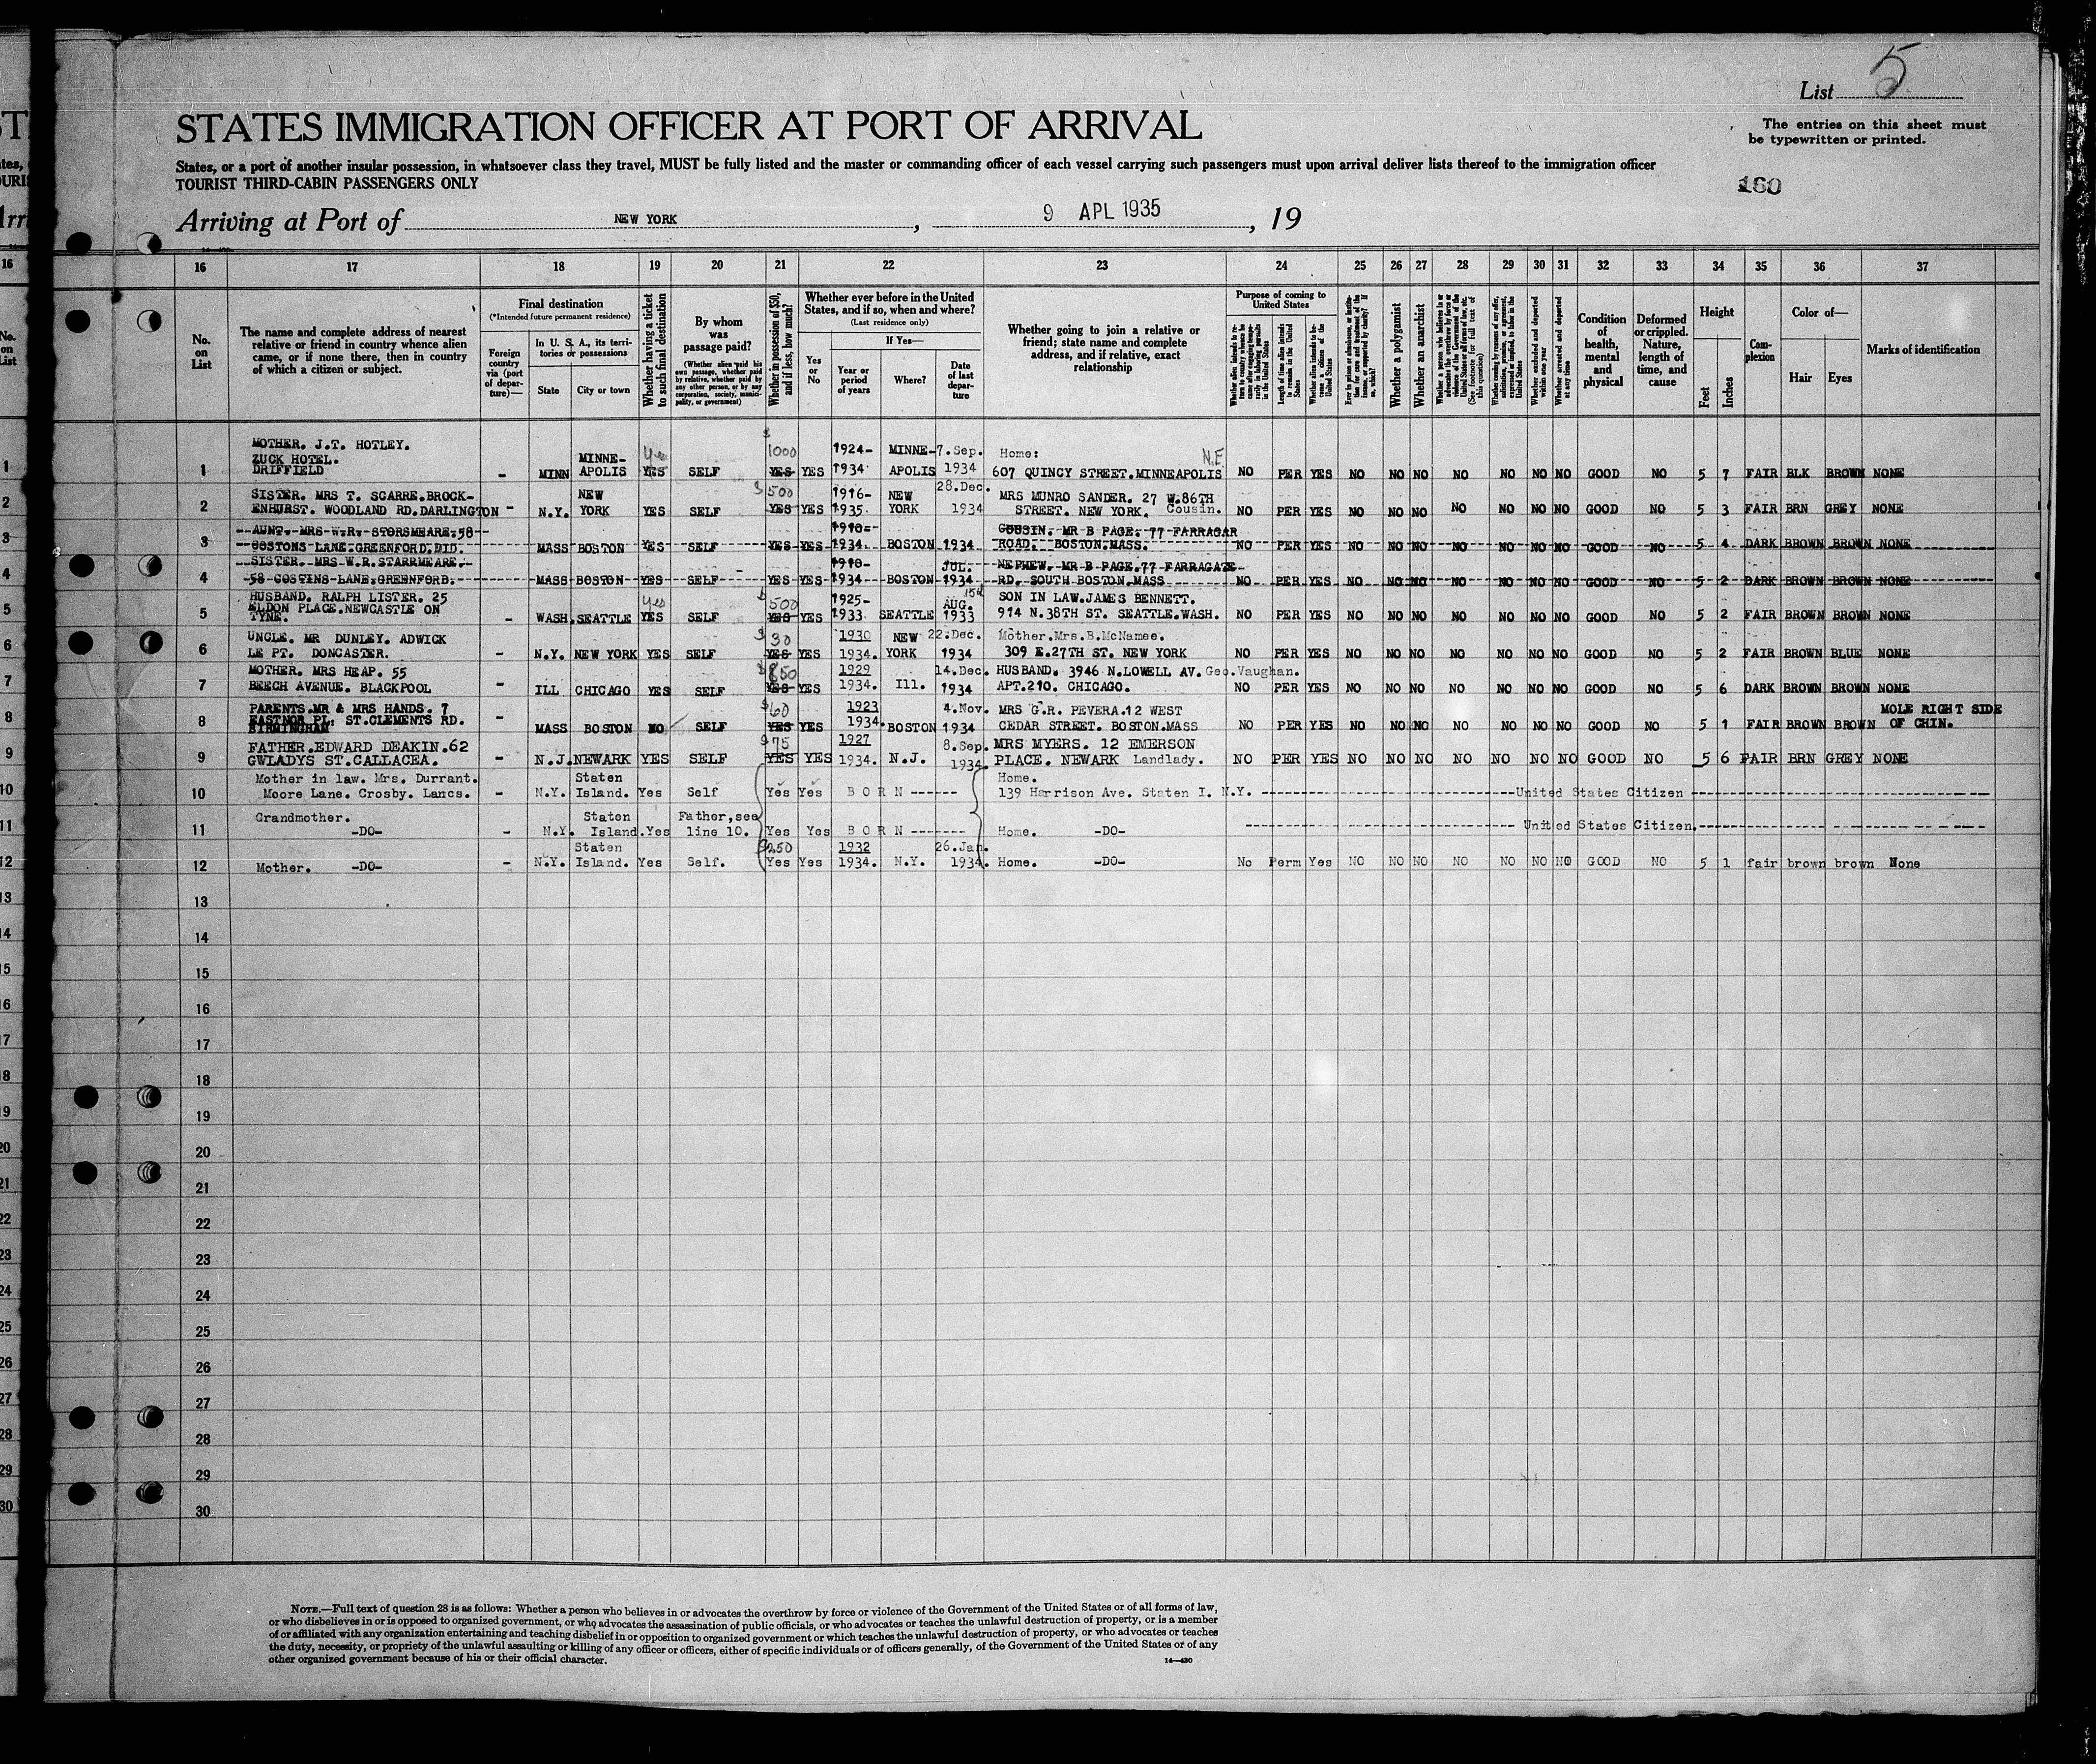 List 5
STATES IMMIGRATION OFFICER AT PORT OF ARRIVAL
The entries on this sheet must
be typewritten or printed.
States, or a port of another insular possession, in whatsoever class they travel, MUST be fully listed and the master or commanding officer of each vessel carrying such passengers must upon arrival deliver lists thereof to the immigration officer
TOURIST THIRD-CABIN PASSENGERS ONLY
160
Arriving at Port of NEW YORK, 9 APL 1935, 19
16 17 18 19 20 21 22 23 24 25 26 27 28 29 30 31 32 33 34 35 36 37
No. on List
The name and complete address of nearest
relative or friend in country whence alien
came, or if none there, then in country
of which a citizen or subject.
Final destination
(*Intended future permanent residence)
Foreign country via (port of departure)—
In U. S. A., its territories or possessions
State
City or town
Whether having a ticket to such final destination
By whom was passage paid?
(Whether alien paid his own passage, whether paid by relative, whether paid by any other person, or by any corporation, society, municipality, or government)
Whether in possession of $50, and if less, how much?
Whether ever before in the United States, and if so, when and where?
(Last residence only)
Yes or No
If Yes—
Year or period of years
Where?
Date of last departure
Whether going to join a relative or
friend; state name and complete
address, and if relative, exact
relationship
Purpose of coming to United States
Length of time alien intends to remain in the United States
Whether alien intends to become a citizen of the United States
Whether a polygamist
Whether an anarchist
Whether excluded and deported within one year
Whether arrested and deported at any time
Condition of health, mental and physical
Deformed or crippled. Nature, length of time, and cause
Height
Feet
Inches
Complexion
Color of—
Hair
Eyes
Marks of identification
MOTHER. J.T. HOTLEY. MINNE- Yes $1000 1924- MINNE- 7.Sep. Home: N.E.
ZUCK HOTEL.
1 DRIFFIELD - MINN APOLIS YES SELF YES YES 1934 APOLIS 1934 607 QUINCY STREET.MINNEAPOLIS NO PER YES NO NO NO NO NO NO NO GOOD NO 5 7 FAIR BLK BROWN NONE
SISTER. MRS T. SCARRE.BROCK- NEW $500 1916- NEW 28.Dec. MRS MUNRO SANDER. 27 W.86TH
2 ENHURST. WOODLAND RD.DARLINGTON - N.Y. YORK YES SELF YES YES 1935 YORK 1934 STREET. NEW YORK. Cousin. NO PER YES NO NO NO NO NO NO NO GOOD NO 5 3 FAIR BRN GREY NONE
AUNT. MRS W.R. STORSMEARE.58 1910- COUSIN. MR B PAGE. 77 FARRAGAR
3 COSTONS LANE.GREENFORD.MID. MASS BOSTON YES SELF YES YES 1934 BOSTON 1934 ROAD. BOSTON.MASS. NO PER YES NO NO NO NO NO NO NO GOOD NO 5 4 DARK BROWN BROWN NONE
SISTER. MRS W.R.STARRMEARE. 1910- JUL. NEPHEW. MR B PAGE.77 FARRAGATE
4 58 COSTINS LANE.GREENFORD. MASS BOSTON YES SELF YES YES 1934 BOSTON 1934 RD. SOUTH BOSTON.MASS NO PER YES NO NO NO NO NO NO NO GOOD NO 5 2 DARK BROWN BROWN NONE
HUSBAND. RALPH LISTER. 25 Yes $500 1925- 15th AUG. SON IN LAW.JAMES BENNETT.
5 ELDON PLACE.NEWCASTLE ON TYNE. - WASH. SEATTLE YES SELF YES YES 1933 SEATTLE 1933 914 N.38TH ST. SEATTLE.WASH. NO PER YES NO NO NO NO NO NO NO GOOD NO 5 2 FAIR BROWN BROWN NONE
UNCLE. MR DUNLEY. ADWICK $30 1930 NEW 22.Dec. Mother.Mrs.B.McNamee.
6 LE PT. DONCASTER. - N.Y. NEW YORK YES SELF YES YES 1934. YORK 1934 309 E.27TH ST. NEW YORK NO PER YES NO NO NO NO NO NO NO GOOD NO 5 2 FAIR BROWN BLUE NONE
MOTHER. MRS HEAP. 55 $850 1929 14.Dec. HUSBAND. 3946 N.LOWELL AV. Geo.Vaughan.
7 BEECH AVENUE. BLACKPOOL - ILL CHICAGO YES SELF YES YES 1934. Ill. 1934 APT.210. CHICAGO. NO PER YES NO NO NO NO NO NO NO GOOD NO 5 6 DARK BROWN BROWN NONE
PARENTS.MR & MRS HANDS. 7 $60 1923 4.Nov. MRS G.R. PEVERA.12 WEST MOLE RIGHT SIDE
8 EASTNOR PL: ST.CLEMENTS RD. BIRMINGHAM - MASS BOSTON NO SELF YES YES 1934. BOSTON 1934 CEDAR STREET. BOSTON.MASS NO PER YES NO NO NO NO NO NO NO GOOD NO 5 1 FAIR BROWN BROWN OF CHIN.
FATHER.EDWARD DEAKIN.62 $75 1927 8.Sep. MRS MYERS. 12 EMERSON
9 GWLADYS ST.CALLACEA. - N.J. NEWARK YES SELF YES YES 1934. N.J. 1934 PLACE. NEWARK Landlady. NO PER YES NO NO NO NO NO NO NO GOOD NO 5 6 FAIR BRN GREY NONE
Mother in law. Mrs. Durrant. Staten Home.
10 Moore Lane. Crosby. Lancs. - N.Y. Island. Yes Self Yes Yes BORN 139 Harrison Ave. Staten I. N.Y. United States Citizen
Grandmother. Staten Father,see
11 -DO- - N.Y. Island. Yes line 10. Yes Yes BORN Home. -DO- United States Citizen.
Staten $250 1932 26.Jan.
12 Mother. -DO- - N.Y. Island. Yes Self. Yes Yes 1934. N.Y. 1934. Home. -DO- No Perm Yes NO NO NO NO NO NO NO GOOD NO 5 1 fair brown brown None
13
14
15
16
17
18
19
20
21
22
23
24
25
26
27
28
29
30
NOTE.—Full text of question 28 is as follows: Whether a person who believes in or advocates the overthrow by force or violence of the Government of the United States or of all forms of law,
or who disbelieves in or is opposed to organized government, or who advocates the assassination of public officials, or who advocates or teaches the unlawful destruction of property, or is a member
of or affiliated with any organization entertaining and teaching disbelief in or opposition to organized government or which teaches the unlawful destruction of property, or who advocates or teaches
the duty, necessity, or propriety of the unlawful assaulting or killing of any officer or officers, either of specific individuals or of officers generally, of the Government of the United States or of any
other organized government because of his or their official character.
14—430